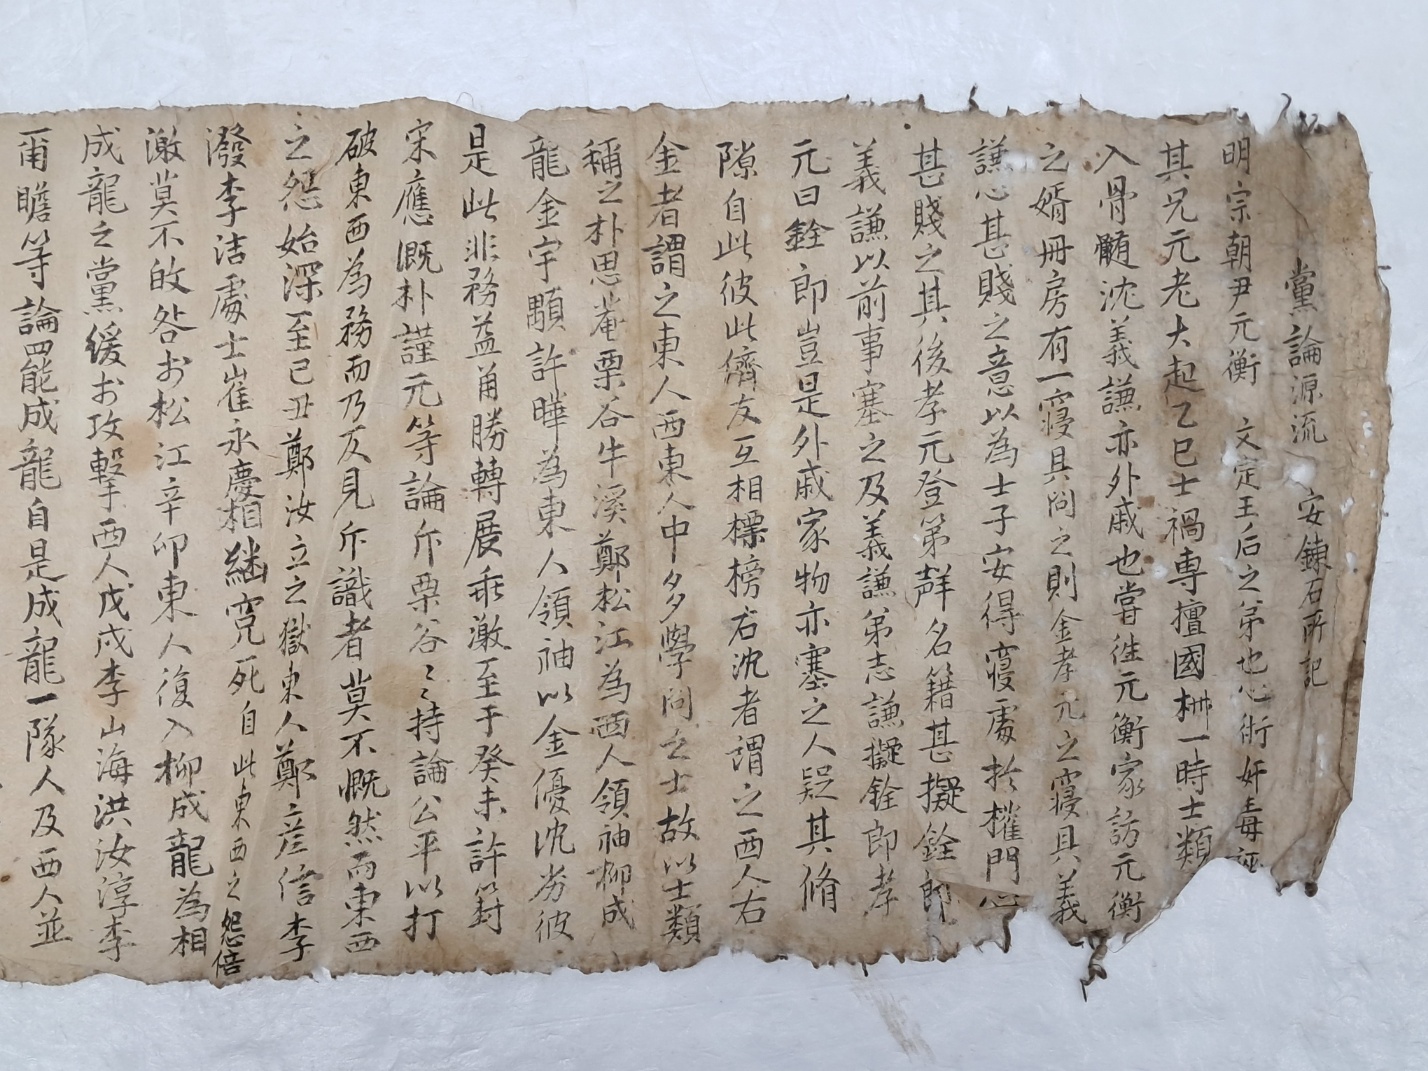 黨論源流 安鍊石所記
明宗朝尹元衡 文定王后之弟也心術奸毒誣
其兄元老大起乙巳士禍專擅國柄一時士類
入骨髓沈義謙亦外戚也嘗徃元衡家訪元衡
之婿冊房有一寢具問之則金孝元之寢具義
謙心甚賤之意以為士子安得寢處於權門心
甚賤之其後孝元登第聲名籍甚擬銓郎
義謙以前事塞之及義謙弟志謙擬銓郎孝
元曰銓郎豈是外戚家物亦塞之人疑其脩
隙自此彼此儕友互相標榜右沈者謂之西人右
金者謂之東人西東人中多學問之士故以士類
稱之朴思菴栗谷牛溪鄭松江為西人領袖柳成
龍金宇顒許曄為東人領袖以金優沈劣彼
是此非務益角勝轉展乖激至于癸未許篈
宋應漑朴謹元等論斥栗谷〻〻持論公平以打
破東西為務而乃反見斥識者莫不慨然而東西
之怨始深至己丑鄭汝立之獄東人鄭彦信李
潑李洁處士崔永慶相継寃死自此東西之怨倍
激莫不敀咎於松江辛卯東人復入柳成龍為相
成龍之黨緩於攻擊西人戊戌李山海洪汝淳李
爾瞻等論罷成龍自是成龍一隊人及西人並